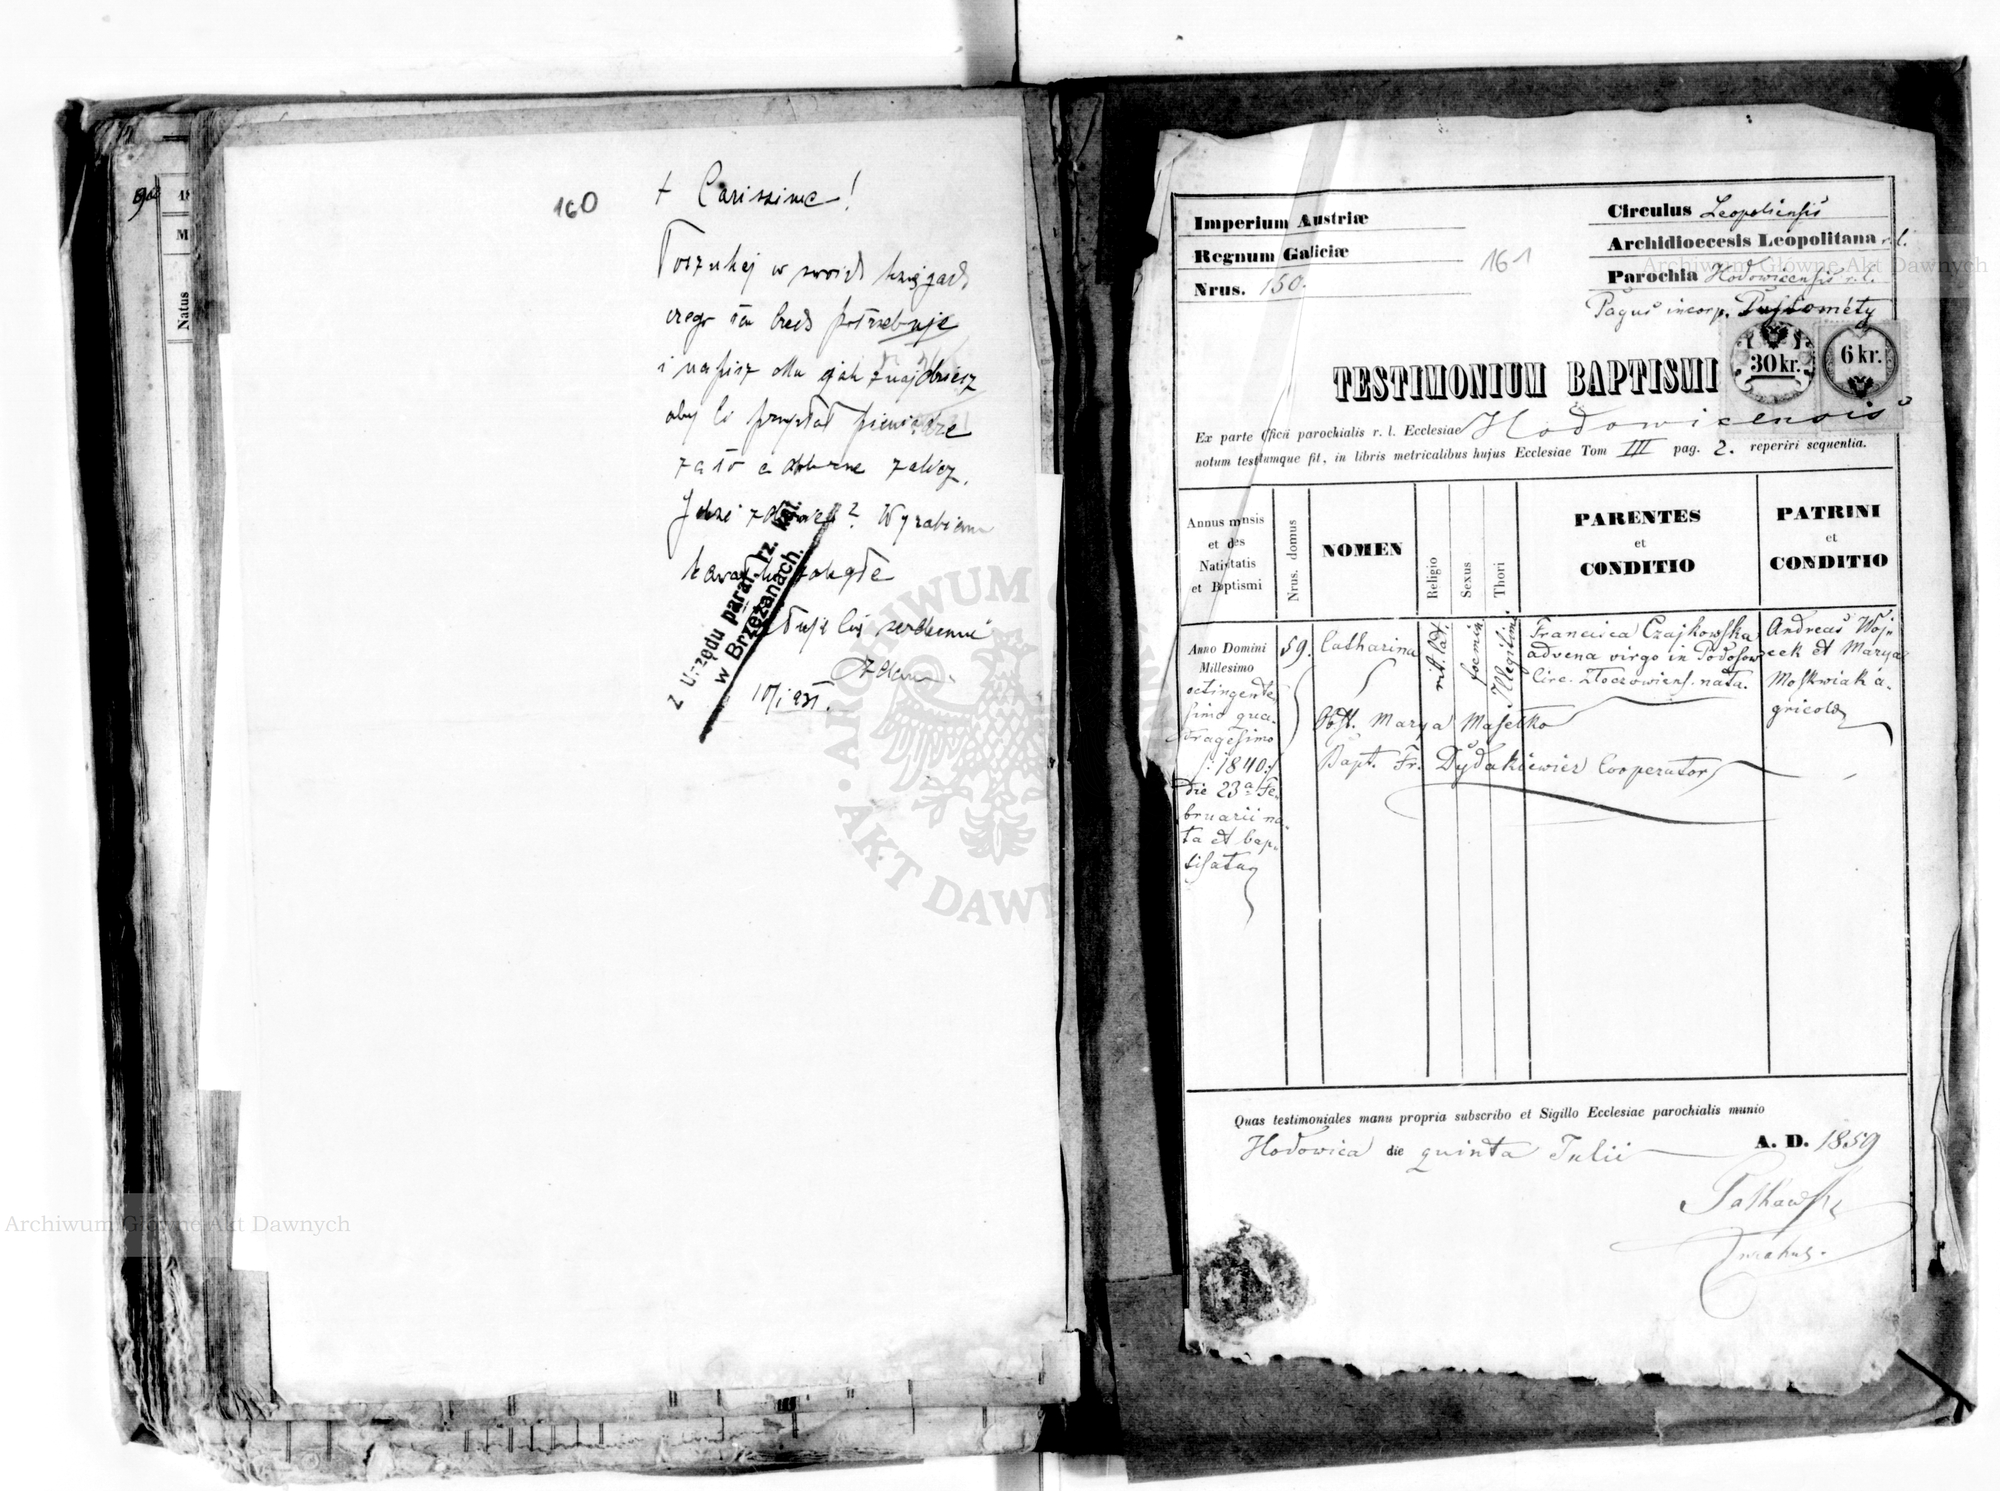 160
+ Carissime!
Poszukaj w swoich księgach
czego ten brat potrzebuje
i napisz mu jak znajdziesz
aby Ci przysłał pieniądze
za to a odbierze zalicz.
Jakże zdrowie?
Z Urzędu paraf. rz. kat.
w Brzeżanach.
serdecznie
Adam
10/I 931.
Natus
Imperium Austriæ
Regnum Galiciæ
Nrus. 150.
161
Circulus Leopoliensis
Archidioecesis Leopolitana r. l.
Parochia Hodowicensis r. l.
Pagus incorp. Pustométy
30 kr.
6 kr.
TESTIMONIUM BAPTISMI
Ex parte officii parochialis r. l. Ecclesiae Hodowicensis
notum testatumque fit, in libris metricalibus hujus Ecclesiae Tom III pag. 2. reperiri sequentia.
Annus mensis
et dies
Nativitatis
et Baptismi
Nrus. domus
NOMEN
Religio
Sexus
Thori
PARENTES
et
CONDITIO
PATRINI
et
CONDITIO
Anno Domini
Millesimo
octingente
simo qua-
dragesimo
/: 1840 :/
die 23a Fe-
bruarii na-
ta et bap-
tisata
59.
Catharina
rit. lat.
foemin.
Illegitimi
Francisca Czajkowska
advena virgo in Podosow
Circ. Złoczowiens. nata.
Andreas Woj-
cek et Marya
Moskwiak a-
gricolae
Obst. Marya Masełko
Bapt. Fr. Dydakiewicz Cooperator
Quas testimoniales manu propria subscribo et Sigillo Ecclesiae parochialis munio
Hodowica die quinta Julii A. D. 1859
ARCHIWUM
AKT DAWN
Archiwum Główne Akt Dawnych
Archiwum Główne Akt Dawnych